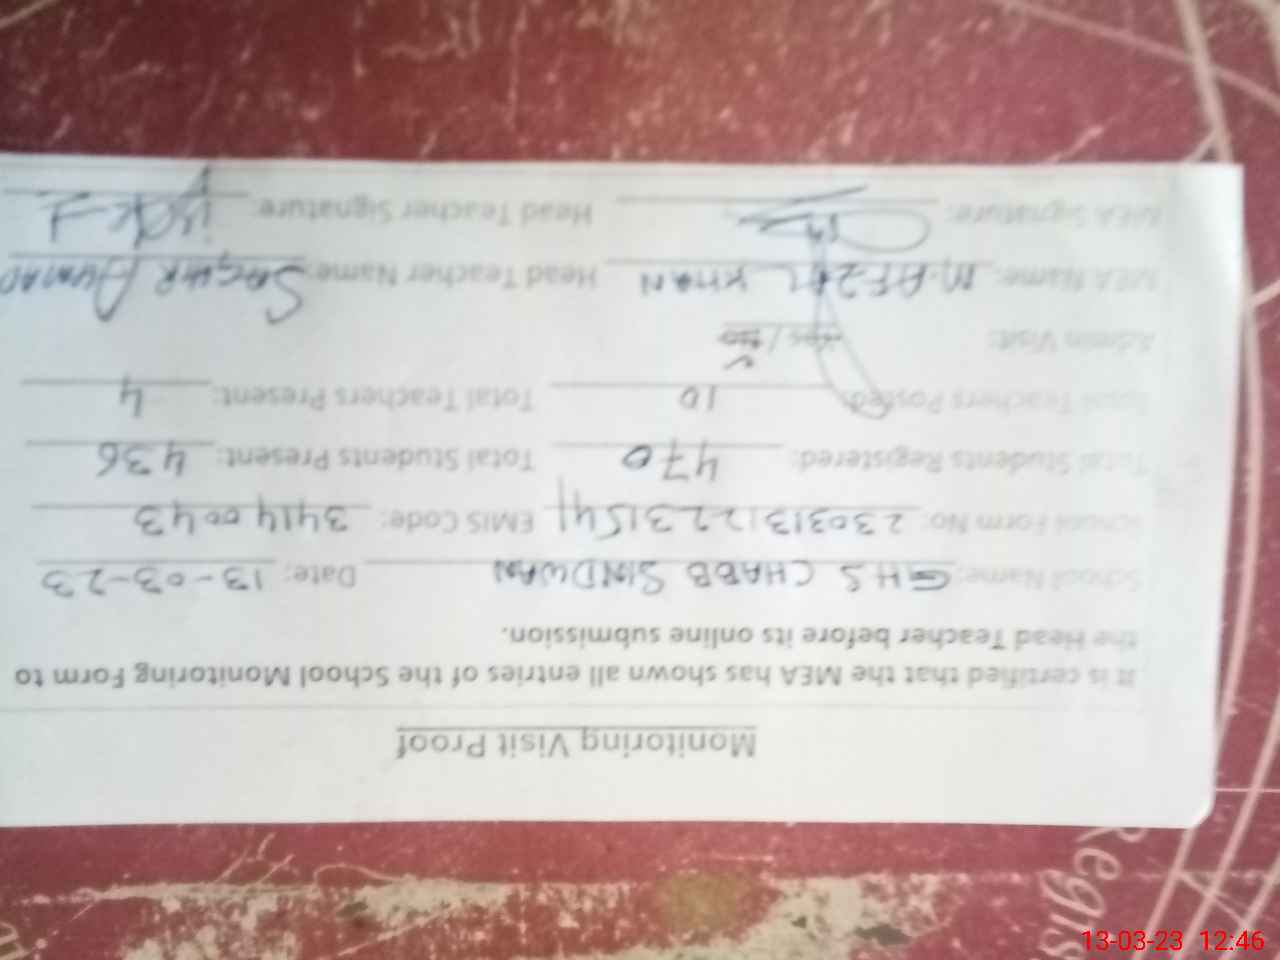 Monitoring Visit Proof
It is certified that the MEA has shown all entries of the School Monitoring Form to
the Head Teacher before its online submission.
School Name: GHS CHABB SINDWAN Date: 13-03-23
School Form No: 23031312231541 EMIS Code: 34140043
Total Students Registered: 470 Total Students Present: 436
Total Teachers Posted: 10 Total Teachers Present: 4
Admin Visit: Yes / No
MEA Name: M. AFZAL KHAN Head Teacher Name: SAGHIR AHMAD
MEA Signature: Head Teacher Signature:
Regis
13-03-23 12:46